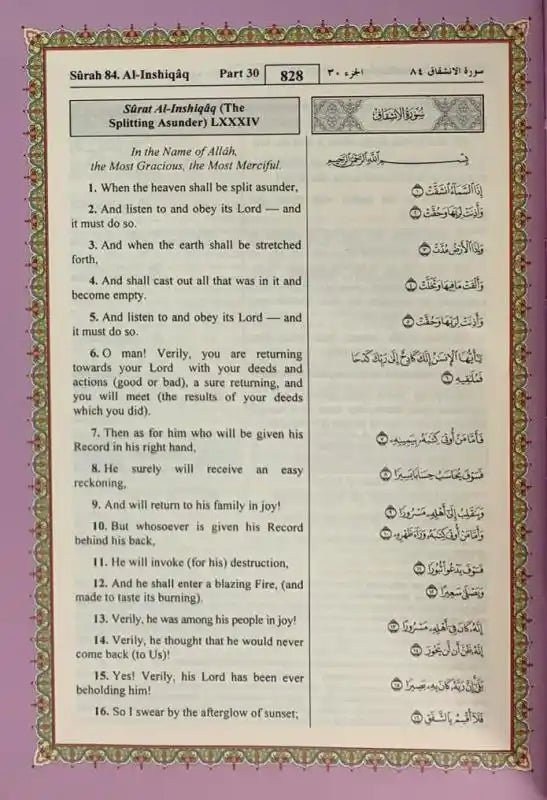 Sûrah 84. Al-Inshiqâq Part 30 828 الجزء ٣٠ سورة الانشقاق ٨٤
Sûrat Al-Inshiqâq (The
Splitting Asunder) LXXXIV
In the Name of Allâh,
the Most Gracious, the Most Merciful.
1. When the heaven shall be split asunder,
2. And listen to and obey its Lord — and
it must do so.
3. And when the earth shall be stretched
forth,
4. And shall cast out all that was in it and
become empty.
5. And listen to and obey its Lord — and
it must do so.
6. O man! Verily, you are returning
towards your Lord with your deeds and
actions (good or bad), a sure returning, and
you will meet (the results of your deeds
which you did).
7. Then as for him who will be given his
Record in his right hand,
8. He surely will receive an easy
reckoning,
9. And will return to his family in joy!
10. But whosoever is given his Record
behind his back,
11. He will invoke (for his) destruction,
12. And he shall enter a blazing Fire, (and
made to taste its burning).
13. Verily, he was among his people in joy!
14. Verily, he thought that he would never
come back (to Us)!
15. Yes! Verily, his Lord has been ever
beholding him!
16. So I swear by the afterglow of sunset;
سُورَةُ الانشِقَاقِ
بِسْمِ اللَّهِ الرَّحْمَٰنِ الرَّحِيمِ
إِذَا ٱلسَّمَآءُ ٱنشَقَّتْ ١
وَأَذِنَتْ لِرَبِّهَا وَحُقَّتْ ٢
وَإِذَا ٱلْأَرْضُ مُدَّتْ ٣
وَأَلْقَتْ مَا فِيهَا وَتَخَلَّتْ ٤
وَأَذِنَتْ لِرَبِّهَا وَحُقَّتْ ٥
يَٰٓأَيُّهَا ٱلْإِنسَٰنُ إِنَّكَ كَادِحٌ إِلَىٰ رَبِّكَ كَدْحًا
فَمُلَٰقِيهِ ٦
فَأَمَّا مَنْ أُوتِىَ كِتَٰبَهُۥ بِيَمِينِهِۦ ٧
فَسَوْفَ يُحَاسَبُ حِسَابًا يَسِيرًا ٨
وَيَنقَلِبُ إِلَىٰٓ أَهْلِهِۦ مَسْرُورًا ٩
وَأَمَّا مَنْ أُوتِىَ كِتَٰبَهُۥ وَرَآءَ ظَهْرِهِۦ ١٠
فَسَوْفَ يَدْعُوا۟ ثُبُورًا ١١
وَيَصْلَىٰ سَعِيرًا ١٢
إِنَّهُۥ كَانَ فِىٓ أَهْلِهِۦ مَسْرُورًا ١٣
إِنَّهُۥ ظَنَّ أَن لَّن يَحُورَ ١٤
بَلَىٰٓ إِنَّ رَبَّهُۥ كَانَ بِهِۦ بَصِيرًا ١٥
فَلَآ أُقْسِمُ بِٱلشَّفَقِ ١٦